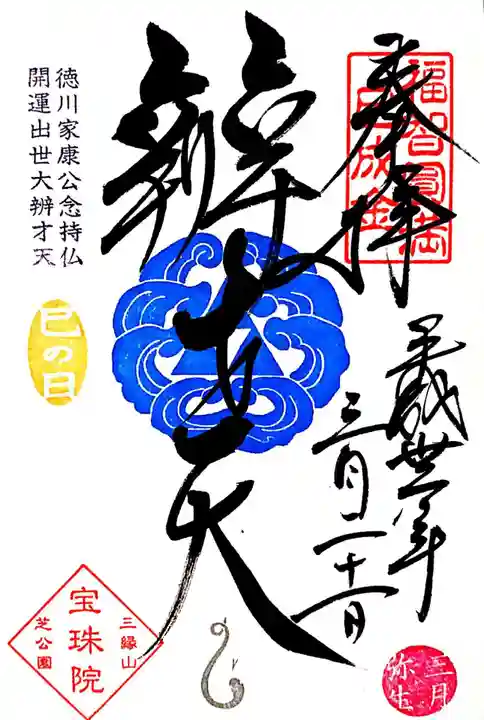 奉拝
福智圓満
平成世一年
三月二十一日
辨才天
徳川家康公念持仏
開運出世大辨才天
巳の日
三縁山
宝珠院
芝公園
三月
弥生